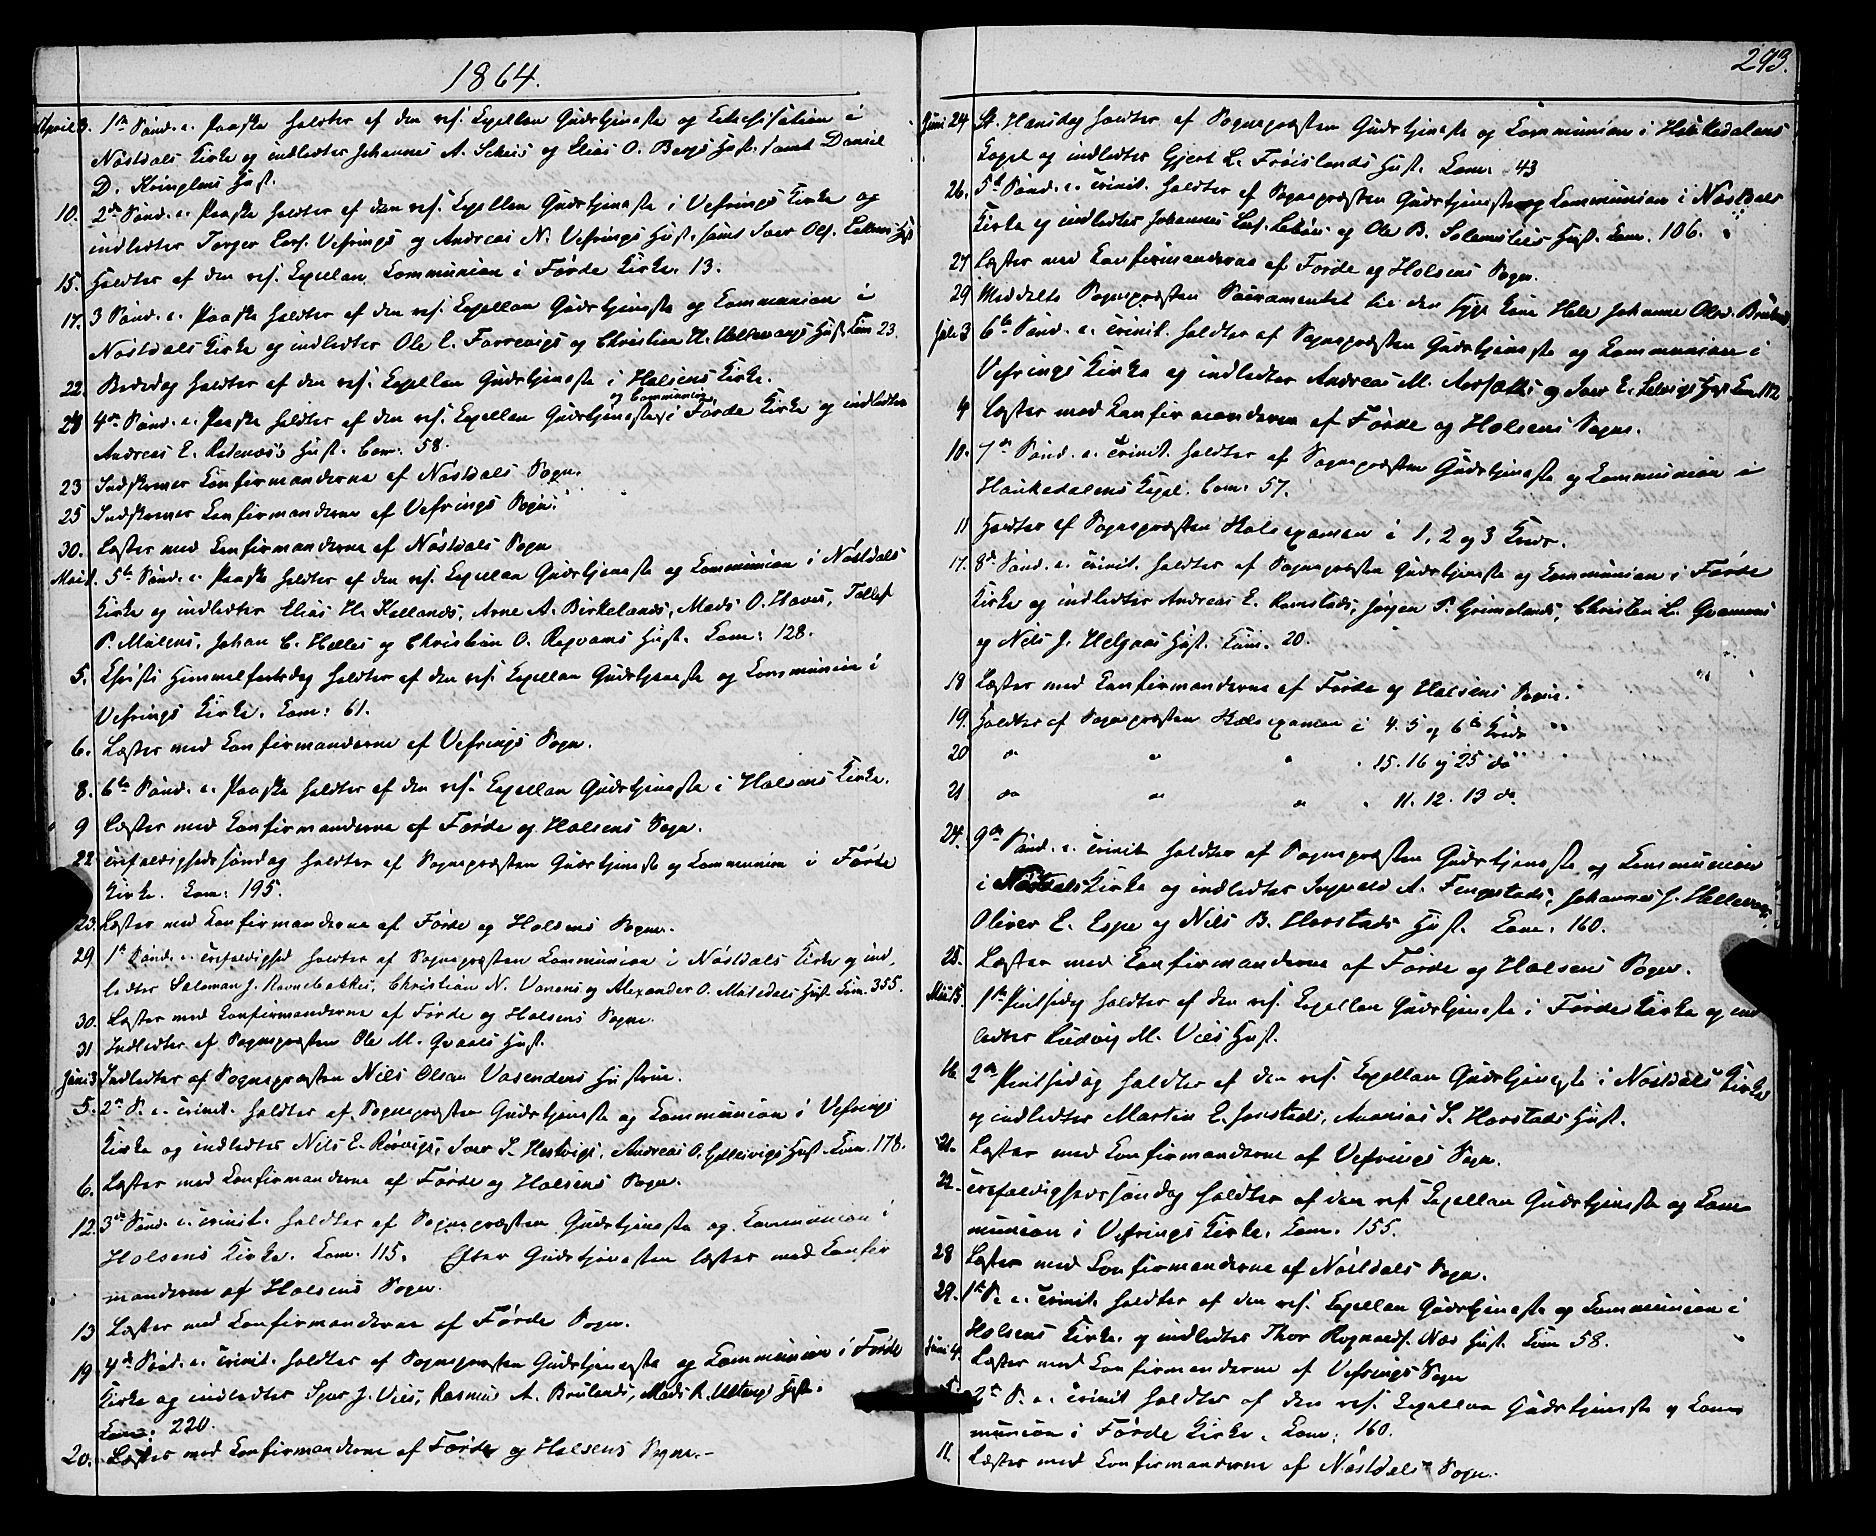 1864.
April 3. 1ste Sönd. e. Paaske holdter af den res. Capellan Gudstjeneste og Catechisation i
Nöstdals Kirke og indledter Johannes A. Scheis og Elias O. Bergs Hust. samt Daniel
D. Hust.
10. 2den Sönd. e. Paaske holdter af den res. Capellan Gudstjeneste i Vefrings Kirke og
indledter Torger Vefrings og Andreas N. Vefrings Hust. samt Iver Ols. Hust.
15. Holdter af den res. Capellan Communion i Förde Kirke. 13.
17. 3 Sönd. e. Paaske holdter af den res. Capellan Gudstjeneste og Communion i
Nöstdals Kirke og indledter Ole E. Farrevigs og Christian H. Hust. Com 23.
22. Bededag holdter af den res. Capellan Gudstjeneste i Holsens Kirke.
24 4de Sönd. e. Paaske holdter af den res. Capellan Gudstjeneste og Communion i Förde Kirke og indledter
Andreas E. Hust. Com: 58.
23 Indskrever Confirmanderne af Nöstdals Sogn.
25 Indskrever Confirmanderne af Vefrings Sogn.
30. Læster med Confirmanderne af Nöstdals Sogn
Mai 1. 5te Sönd. e. Paaske holdter af den res. Capellan Gudstjeneste og Communion i Nöstdals
Kirke og indledter Elias H. Kellands, Arne A. Birkelands, Mads O. Haves, Tollef
P. Mülens, Johan C. Helles og Christian O. Hust. Com: 128.
5. Christi Himmelfartsdag holdter af den res. Capellan Gudstjeneste og Communion i
Vefrings Kirke. Com: 61.
6. Læster med Confirmanderne af Vefrings Sogn.
8. 6te Sönd. e. Paaske holdter af den res. Capellan Gudstjeneste i Holsens Kirke.
9 Læster med Confirmanderne af Förde og Holsens Sogn.
22 Trefoldighedssöndag holdter af Sognepræsten Gudstjeneste og Communion i Förde
Kirke. Com: 195.
23. Læster med Confirmanderne af Förde og Holsens Sogne.
29 1ste Sönd. e. Trefoldighed holdter af Sognepræsten Communion i Nöstdals Kirke og ind,
ledter Salomon J. Ravnebakkes, Christian N. Vonens og Alexander O. Hust. Com. 355.
30. Læster med Confirmanderne af Förde og Holsens Sogne.
31 Indledter af Sognepræsten Ole M. Hust.
Juni 3 Indledter af Sognepræsten Nils Olsen Vasendens Hustrue.
5. 2den S. e. Trinit. holdter af Sognepræsten Gudstjeneste og Communion i Vefrings
Kirke og indledter Nils E. Rörvigs, Iver S. Hestvigs, Andreas O. Hust. Com. 178.
6. Læster med Confirmanderne af Förde og Holsens Sogn.
12. 3die Sönd. e. Trinit. holdter af Sognepræsten Gudstjeneste og Communion i
Holsens Kirke. Com. 115. Efter Gudstjenesten læster med Confir
manderne af Holsens Sogn.
13 Læster med Confirmanderne af Förde Sogn.
19 4de Sönd. e. Trinit. holdter af Sognepræsten Gudstjeneste og Communion i Förde
Kirke og indledter J. Vies, Rasmus A. Brulands, Mads R. Hust.
Com: 220.
20. Læster med Confirmanderne af Förde og Holsens Sogne.
293.
Juni 24 St. Hansdag holdter af Sognepræsten Gudstjeneste og Communion i Haukedalens
Capel og indledter Gjert L. Fröislands Hust. Com. 43
26. 5te Sönd. e. Trinit. holdter af Sognepræsten Gudstjeneste og Communion i Nöstdals
Kirke og indledter Johannes og Ole B. Solemslies Hust. Com. 106.
27 Læster med Confirmanderne af Förde og Holsens Sogn.
29 Meddelte Sognepræsten Sacramentet til den syge Johanne Olsd. Bruland
Juli 3 6te Sönd. e. Trinit. holdter af Sognepræsten Gudstjeneste og Communion i
Vefrings Kirke og indledter Andreas M. og Iver E. Hust Com 112
4 Læster med Confirmanderne af Förde og Holsens Sogne.
10. 7de Sönd. e. Trinit. holdter af Sognepræsten Gudstjeneste og Communion i
Haukedalens Capel. Com: 57.
11 Holdter af Sognepræsten Skoleexamen i 1, 2 og 3 Kreds.
17. 8de Sönd. e. Trinit. holdter af Sognepræsten Gudstjeneste og Communion i Förde
Kirke og indledter Andreas E. Ramstads, Jörgen P. Grimelands, Christen L. Qvamens
og Nils J. Helgaas Hust. Com. 20.
18 Læster med Confirmanderne af Förde og Holsens Sogne.
19. Holdter af Sognepræsten Skoleexamen i 4. 5 og 6te Kreds
20 do " " 15. 16 og 25 do
21 do " " 11. 12. 13 do
24. 9de Sönd. e. Trinit holdter af Sognepræsten Gudstjeneste og Communion
i Nöstdals Kirke og indledter Ingvald A. Johannes J. Hellevangs,
Oliver E. Espe og Nils B. Horstads Hust. Com. 160.
25. Læster med Confirmanderne af Förde og Holsens Sogn.
Mai 15. 1ste Pintsedag holdter af den res. Capellan Gudstjeneste i Förde Kirke og ind
ledter Ludvig M. Vies Hust.
16 2den Pintsedag holdter af den res. Capellan Gudstjeneste i Nöstdals Kirke
og indledter Martin E. Jonstads, Ananias S. Horstads Hust.
21. Læster med Confirmanderne af Vefrings Sogn.
22. Trefoldighedssöndag holdter af den res. Capellan Gudstjeneste og Com
munion i Vefrings Kirke. Com. 155.
28 Læster med Confirmanderne af Nöstdals Sogn.
29. 1ste S. e. Trinit. holdter af den res. Capellan Gudstjeneste og Communion i
Holsens Kirke og indledter Thor Hust. Com 58.
Juni 4. Læster med Confirmanderne af Vefrings Sogn
5. 2den S. e. Trinit holdter af den res. Capellan Gudstjeneste og Com
munion i Förde Kirke. Com: 160.
11. Læster med Confirmanderne af Nöstdals Sogn.